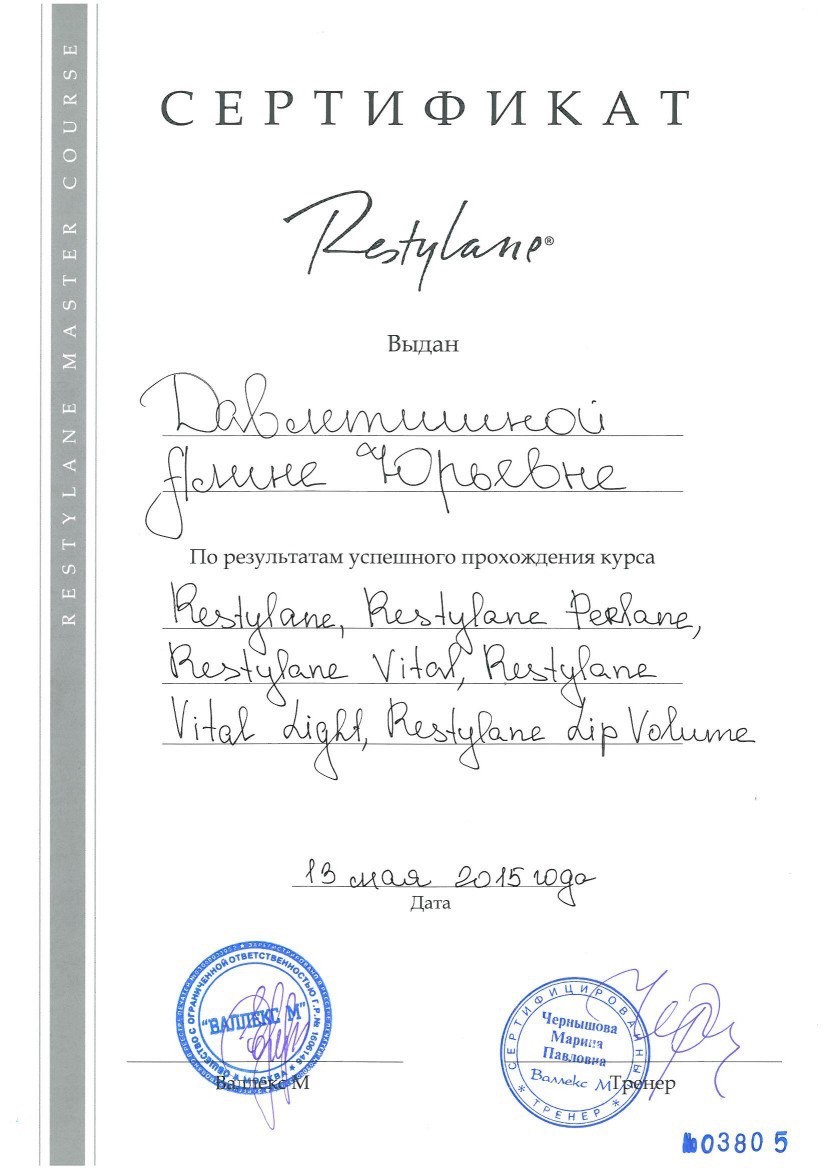 RESTYLANE MASTER COURSE
СЕРТИФИКАТ
Restylane®
Выдан
Давлетшиной
Алине Юрьевне
По результатам успешного прохождения курса
Restylane, Restylane Perlane,
Restylane Vital, Restylane
Vital Light, Restylane Lip Volume
13 мая 2015 года
Дата
ОБЩЕСТВО С ОГРАНИЧЕННОЙ ОТВЕТСТВЕННОСТЬЮ Г.Р.№ 1606146
"ВАЛЛЕКС М"
МОСКВА
Валлекс М
СЕРТИФИЦИРОВАННЫЙ
Чернышова
Марина
Павловна
Валлекс М
ТРЕНЕР
Тренер
№03805